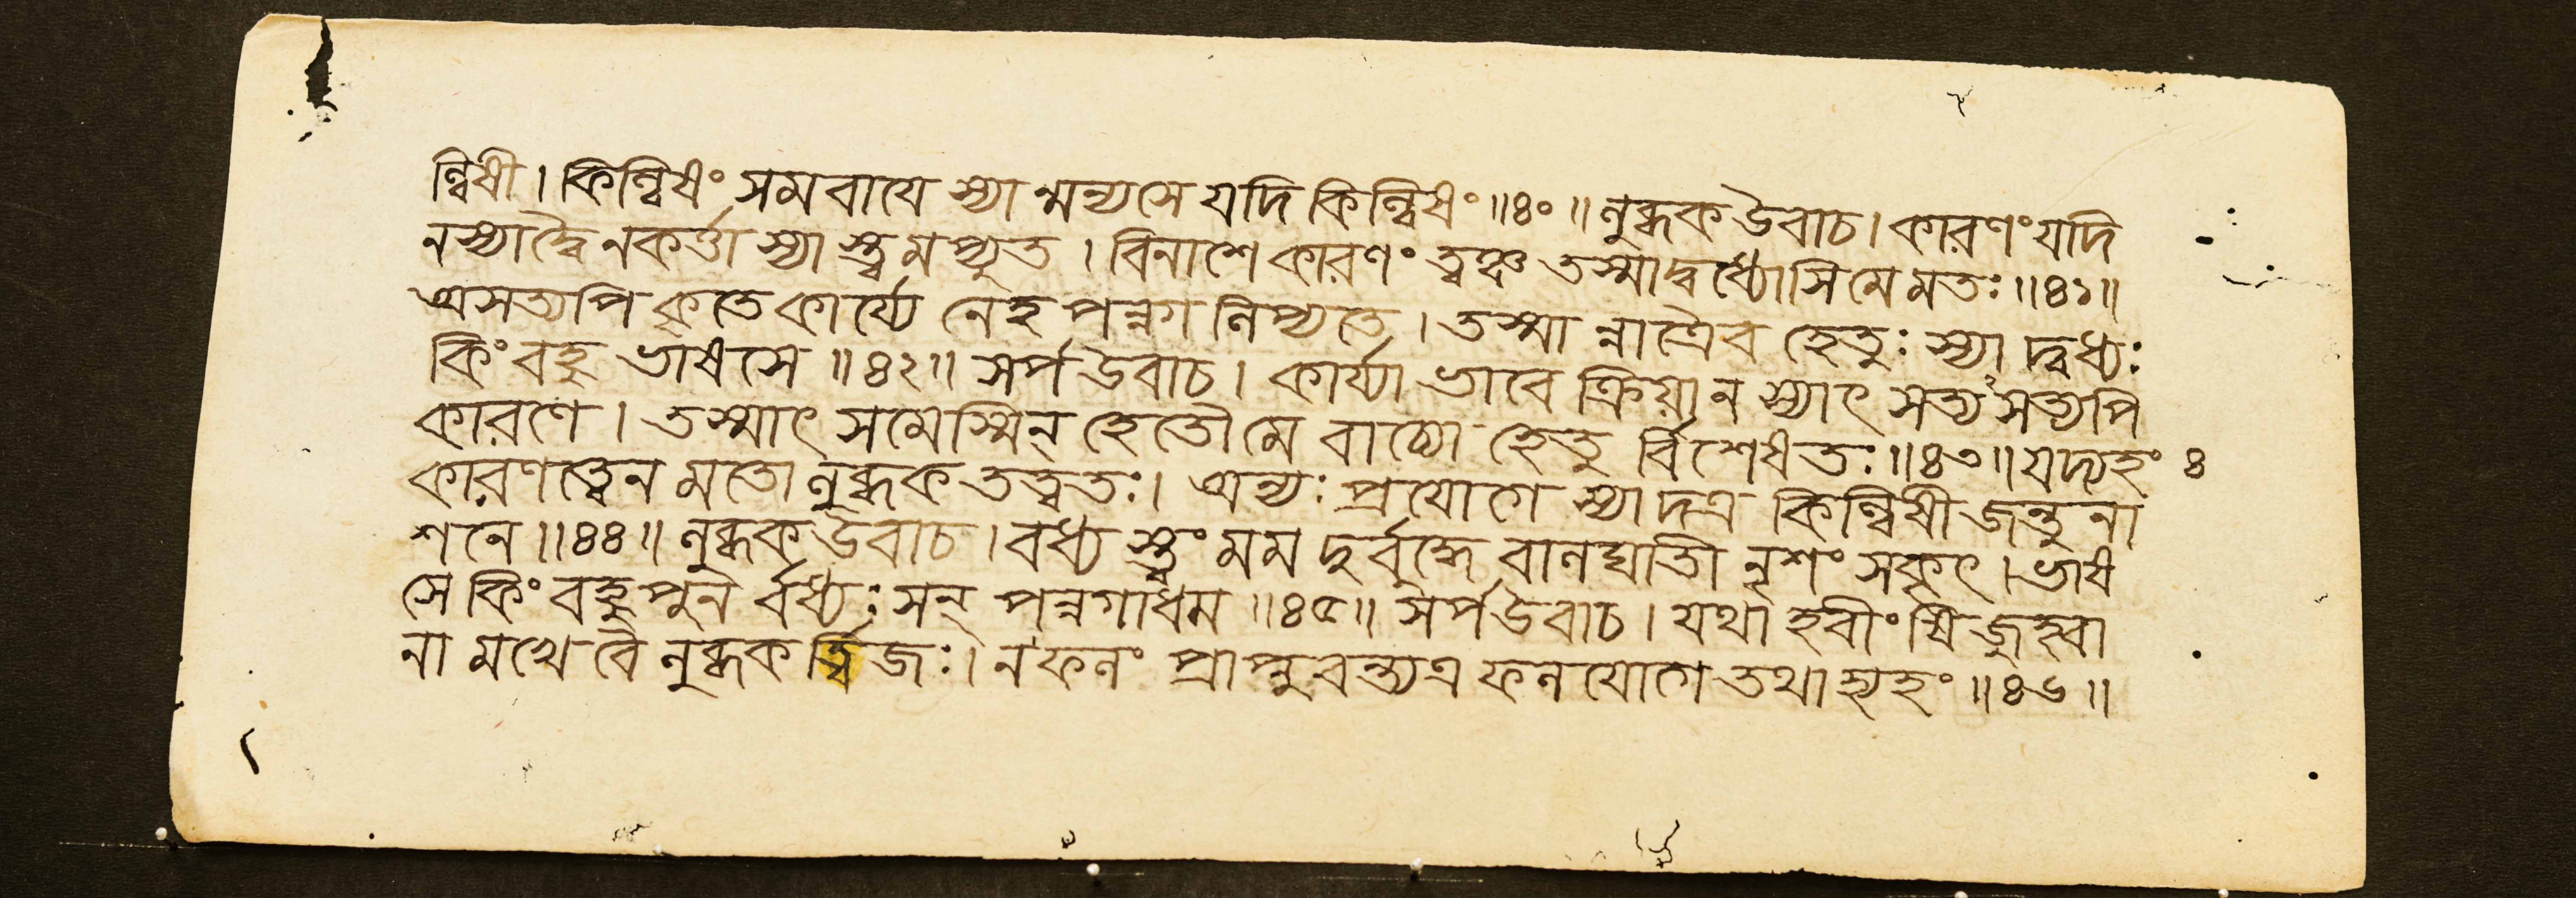 ল্বিষী। কিল্বিষং সমবাযে স্যান্মন্যসে যদি কিল্বিষং॥৪০॥ লুব্ধক উবাচ। কারণং যদি
ন স্যাদ্বৈ ন কর্ত্তা স্যাস্ত্বমপ্যুত। বিনাশে কারণং ত্বঞ্চ তস্মাদ্বধ্যোসি মে মতঃ॥৪১॥
অসত্যপি কৃতে কার্য্যে নেহ পন্নগ লিপ্যতে। তস্মান্নাত্রৈব হেতুঃ স্যাদ্বধ্যঃ
কিং বহু ভাষসে॥৪২॥ সর্প উবাচ। কার্য্যাভাবে ক্রিয়া ন স্যাৎ সত্যসত্যপি
কারণে। তস্মাৎ সমেস্মিন্ হেতৌ মে বাচ্যো হেতুর্বিশেষতঃ॥৪৩॥ যদ্যহং ৪
কারণত্বেন মতো লুব্ধক তত্ত্বতঃ। অন্যঃ প্রযোগে স্যাদত্র কিল্বিষী জন্তুনা
শনে॥৪৪॥ লুব্ধক উবাচ। বধ্যস্ত্বং মম দুর্বুদ্ধে বালঘাতী নৃশংসকৃৎ। ভাষ
সে কিং বহু পুনর্বধ্যঃ সন্ পন্নগাধম॥৪৫॥ সর্প উবাচ। যথা হবীংষি জুহ্বা
না মখে বৈ লুব্ধকর্ত্বিজঃ। ন ফলং প্রাপ্নুবন্ত্যত্র ফলযোগে তথা হ্যহং॥৪৬॥